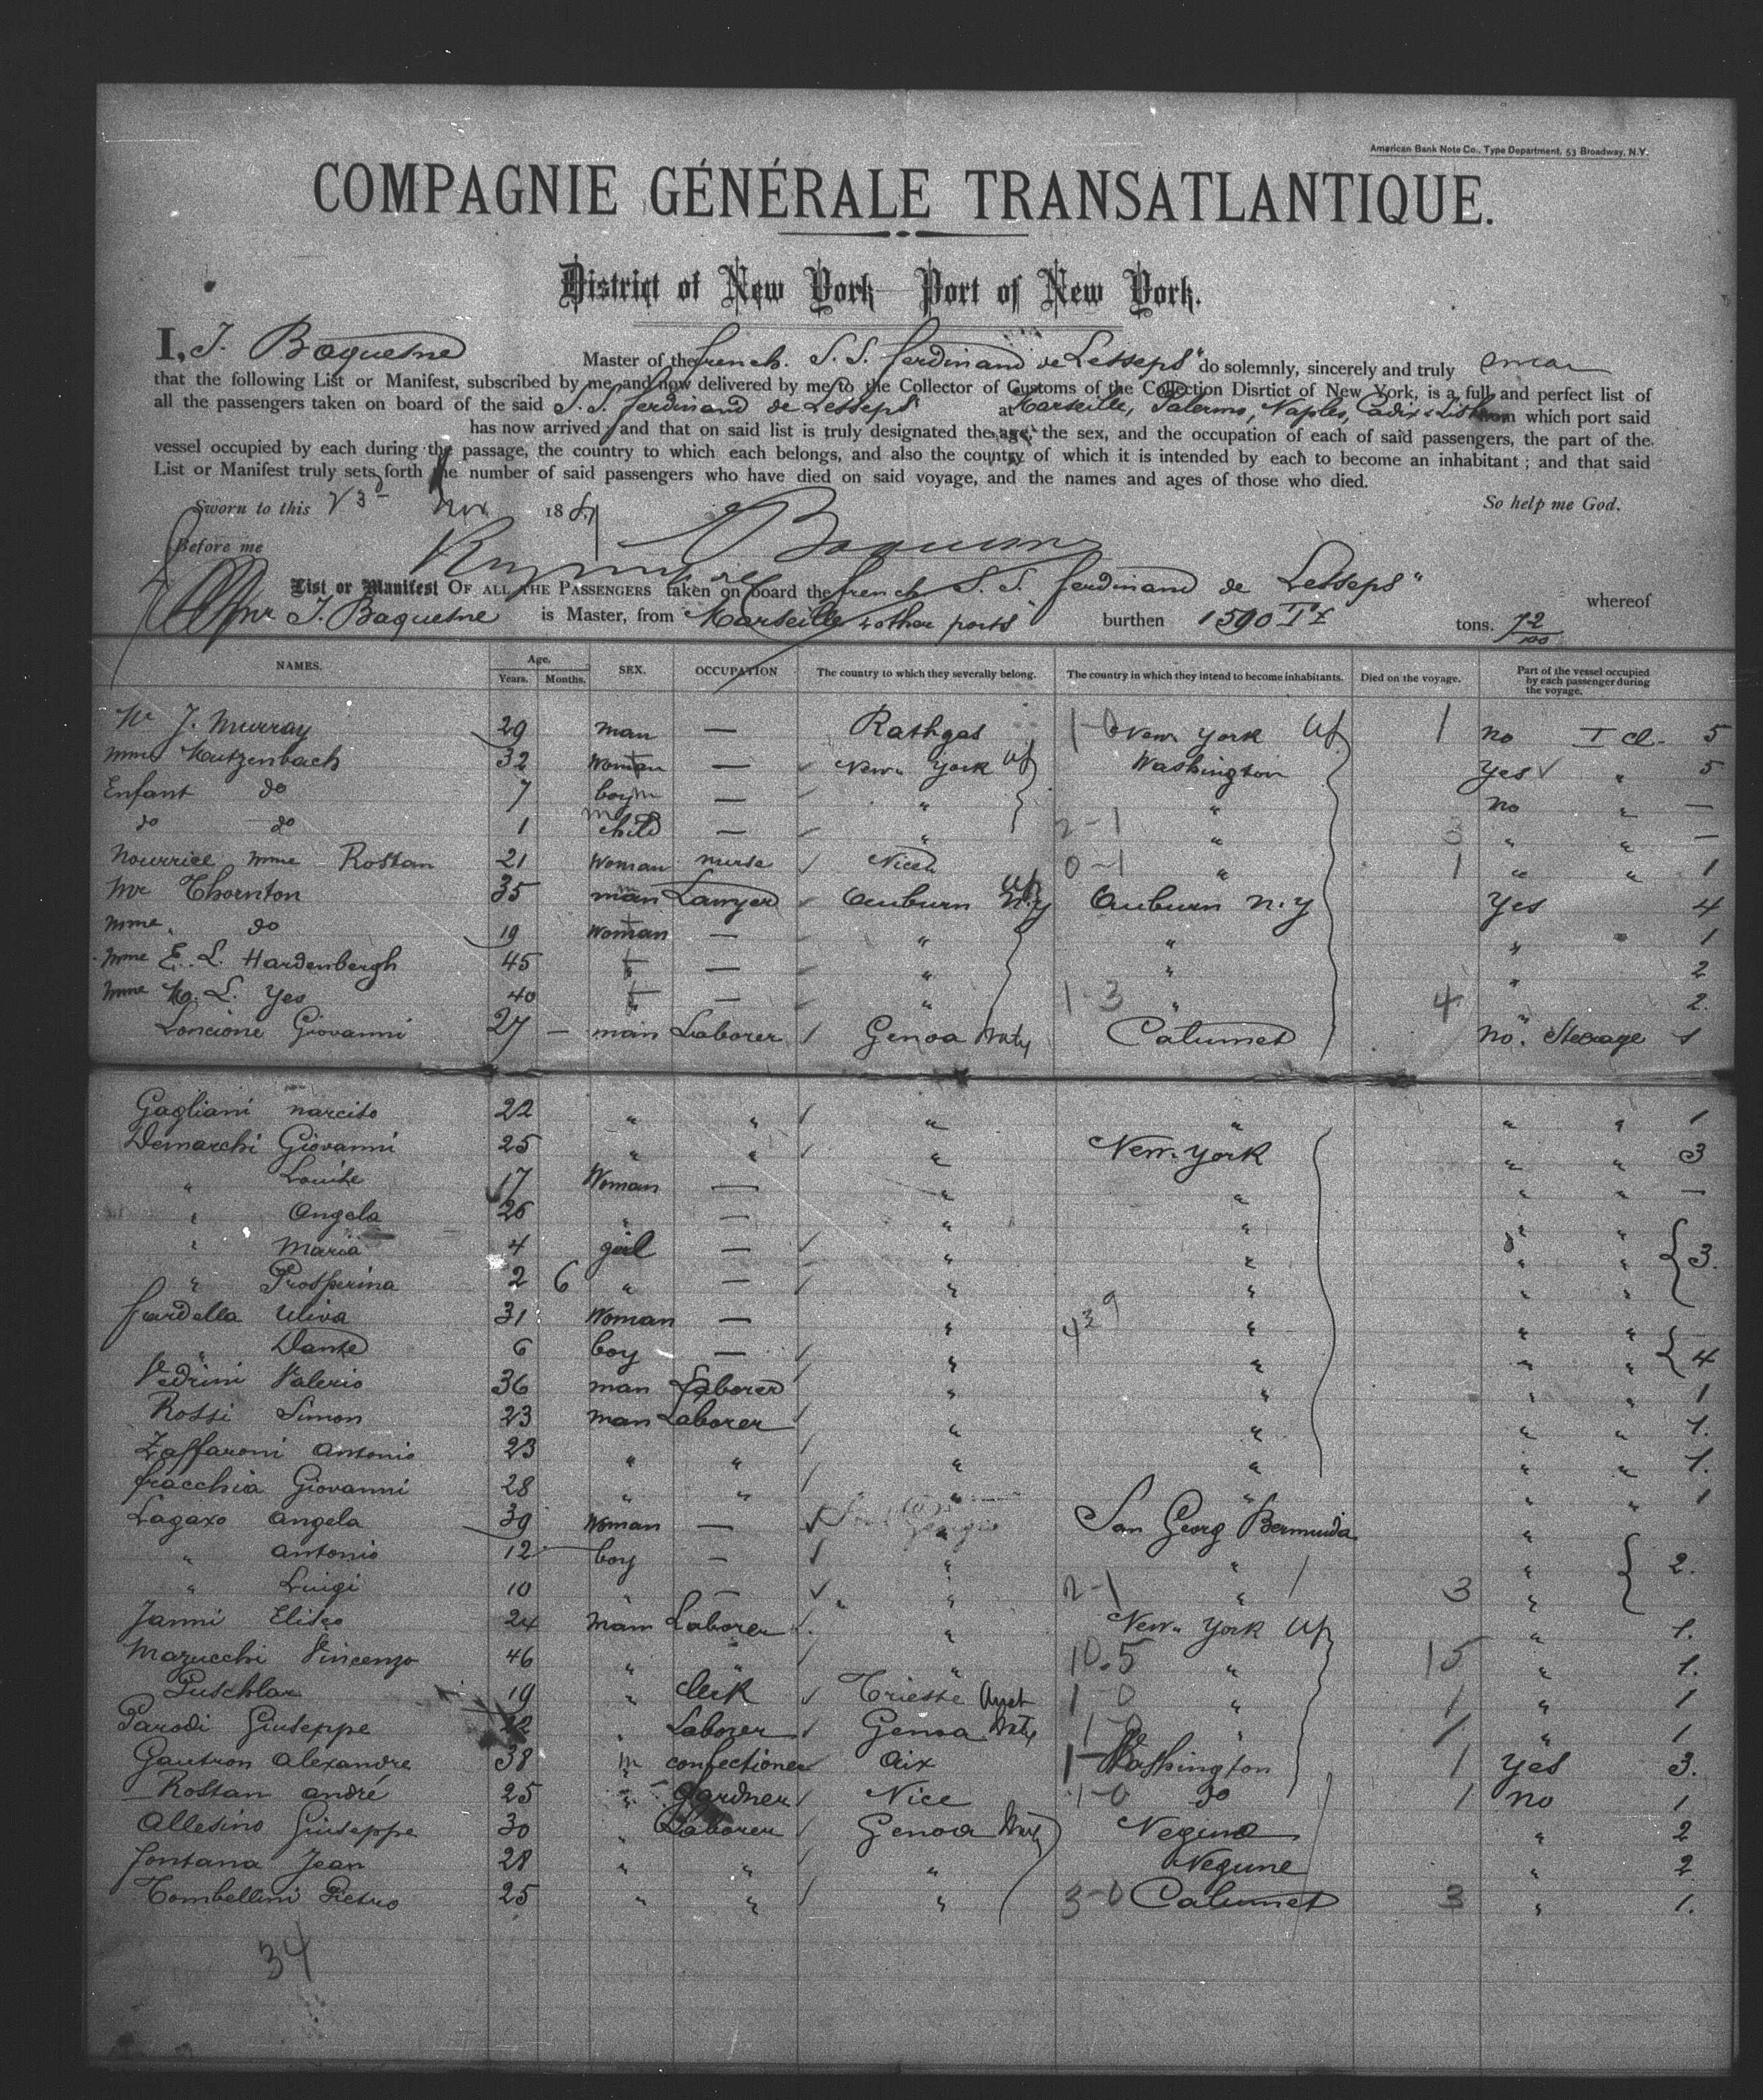 American Bank Note Co., Type Department, 53 Broadway, N.Y.
COMPAGNIE GÉNÉRALE TRANSATLANTIQUE.
District of New York Port of New York.
I, J. Baquesne Master of the french S. S. ferdinand de Lesseps" do solemnly, sincerely and truly swear
that the following List or Manifest, subscribed by me and now delivered by me to the Collector of Customs of the Collection Disrtict of New York, is a full and perfect list of
all the passengers taken on board of the said S. S. ferdinand de Lesseps" at Marseille, Palermo, Naples, Cadix & from which port said
has now arrived; and that on said list is truly designated the age, the sex, and the occupation of each of said passengers, the part of the
vessel occupied by each during the passage, the country to which each belongs, and also the country of which it is intended by each to become an inhabitant; and that said
List or Manifest truly sets forth the number of said passengers who have died on said voyage, and the names and ages of those who died.
Sworn to this 23 Nov 188 So help me God.
Before me Baquesne
List or Manifest OF ALL THE PASSENGERS taken on board the french S. S. ferdinand de Lesseps" whereof
J. Baquesne is Master, from Marseille & other ports burthen 1590 tons. 72/100
NAMES. Age. Years. Months. SEX. OCCUPATION The country to which they severally belong. The country in which they intend to become inhabitants. Died on the voyage. Part of the vessel occupied by each passenger during the voyage.
Mr J. Murray 29 man — Rathgas 1-0 New York 1 no I cl. 5
mme Kutzenbach 32 Woman — New York Washington Yes " 5
Enfant do 7 boy — " " no " —
do do 1 child — " 2-1 " 3 " " —
Nourrice mme Rostan 21 Woman nurse Nice 0-1 " 1 " " 1
Mr Thornton 35 man Lawyer Auburn N.y Auburn N.y Yes 4
mme do 19 Woman — " " " 1
mme E. L. Hardenbergh 45 " — " " " 2
mme L. Yes 40 " — " 1-3 " 4 " 2.
Loncione Giovanni 27 — man Laborer Genoa Italy Calumet no. Steerage 1
Gagliani narciso 22 " " " " " " 1
Demarchi Giovanni 25 " " " New. york " " 3
" Louise 17 Woman — " " " " —
" Angela 26 " — " " " "
" Maria 4 girl — " " " " 3.
" Prosperina 2 6 " — " " " "
fardella Uliva 31 Woman — " " " "
" Dante 6 boy — " " " " 4
Vedrini Valerio 36 man Laborer " " " " 1
Rossi Simon 23 man Laborer " " " " 1.
Zaffaroni Antonio 23 " " " " " " 1.
fracchia Giovanni 28 " " " " " " 1
Lagaxo Angela 39 Woman — " San Georg Bermuda "
" Antonio 12 boy — " " " 2.
" Luigi 10 " — " 2-1 " 3 "
Janni Eliseo 24 man Laborer " New York " 1.
Mazucchi Vincenzo 46 " " " 10.5 " 15 " 1.
Puschlar 19 " clerk Trieste Aust 1-0 " 1 " 1
Parodi Giuseppe 22 " Laborer Genoa Italy 1-0 " 1 " 1
Gautron Alexandre 38 m confectioner Aix 1- Washington 1 Yes 3.
Rostan andré 25 " gardner Nice 1-0 do 1 no 1
Allesino Giuseppe 30 " Laborer Genoa Italy Negune " 2
fontana Jean 28 " " " Negune " 2
Tombellini Pietro 25 " " " 3-0 Calumet 3 " 1.
34